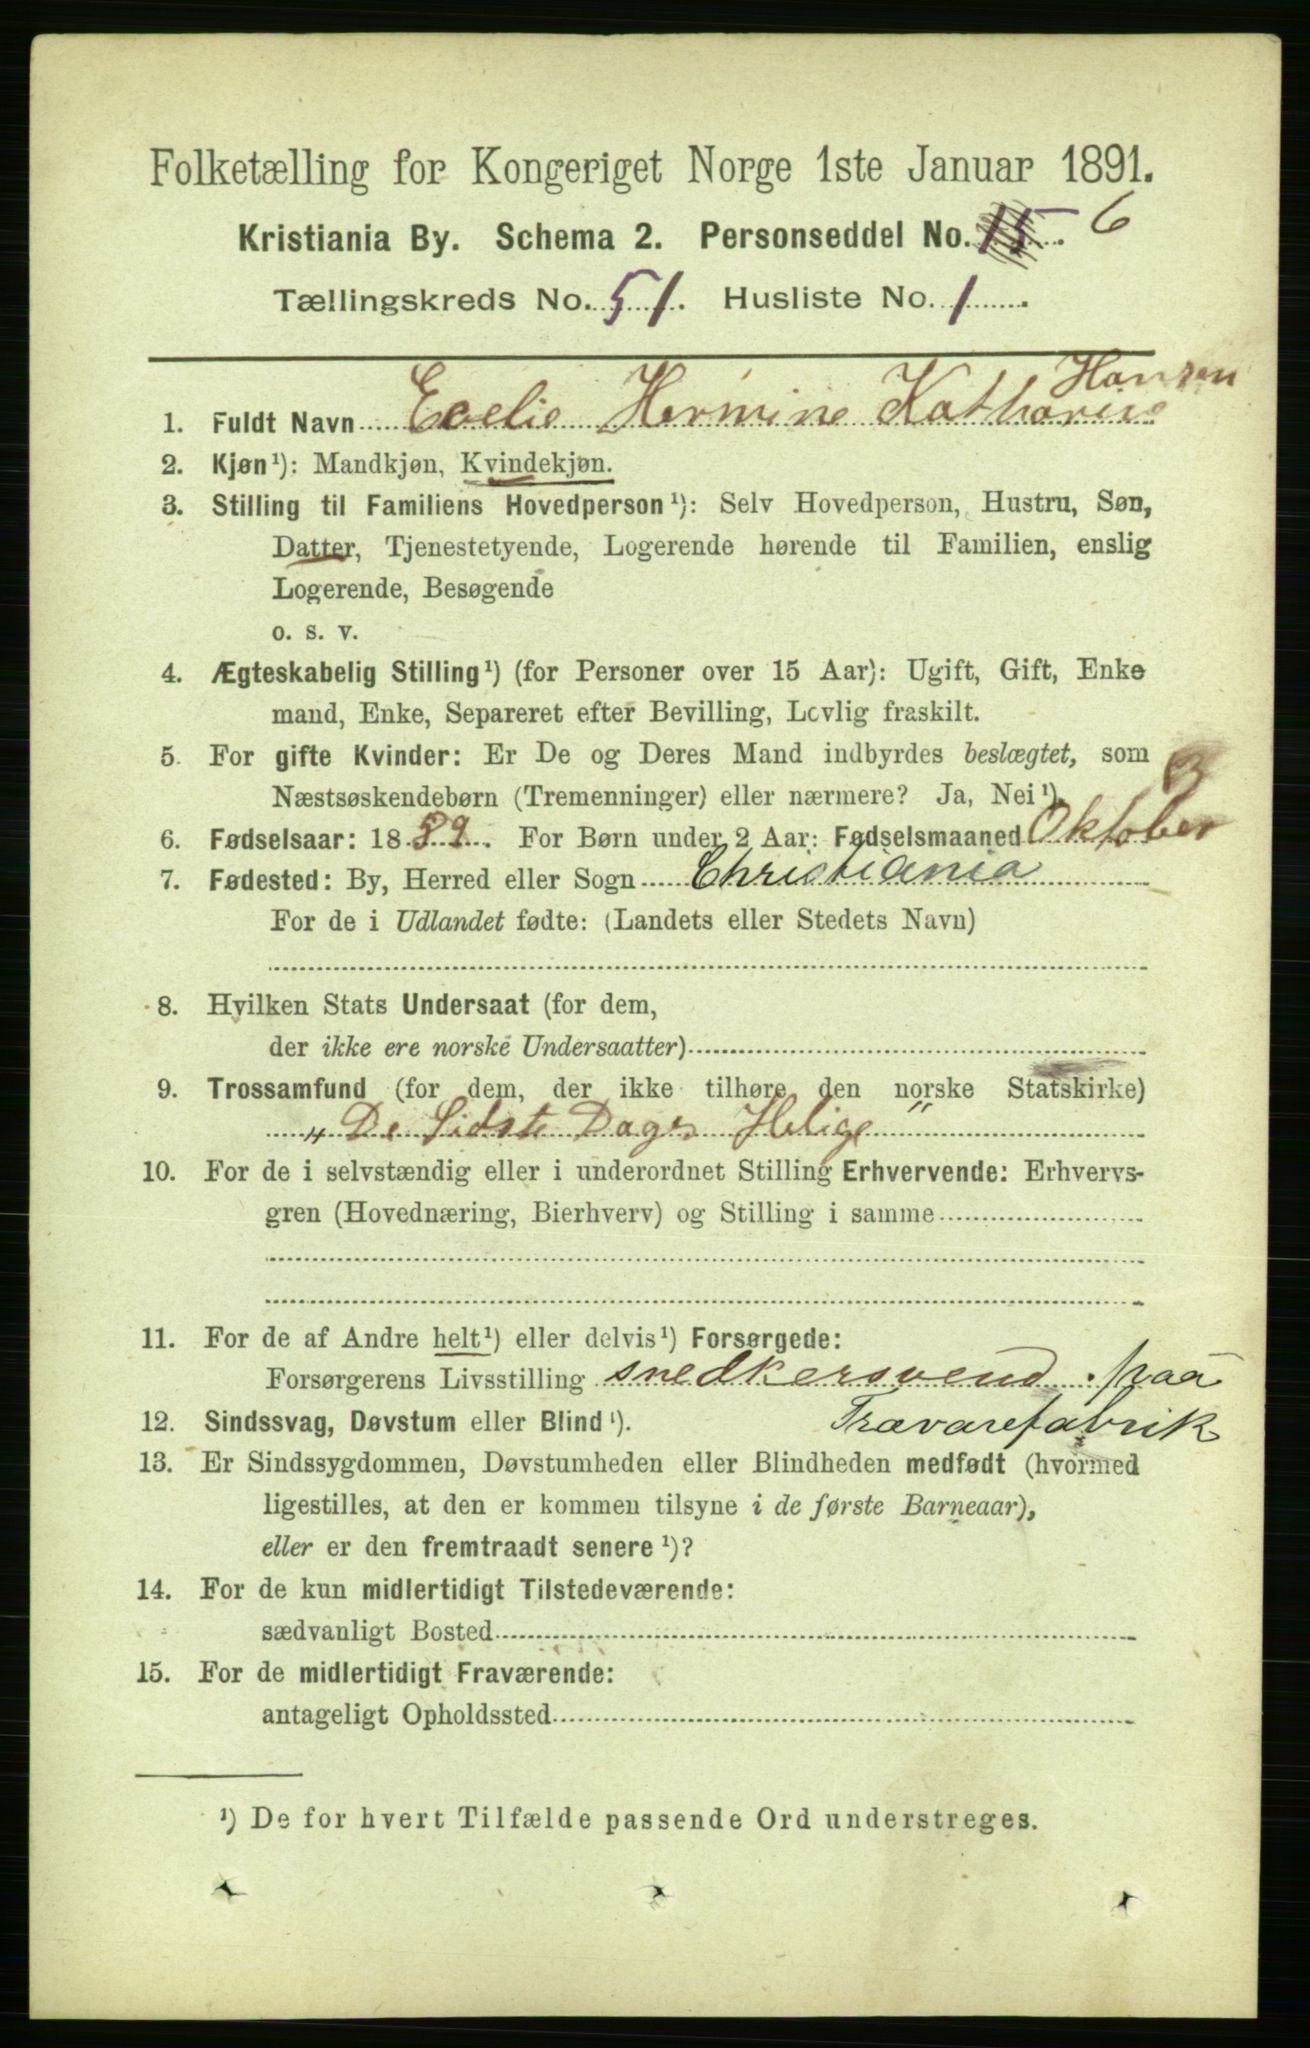 Folketælling for Kongeriget Norge 1ste Januar 1891.
Kristiania By. Schema 2. Personseddel No. 15 6
Tællingskreds No. 51. Husliste No. 1
Hansen
1. Fuldt Navn Evelie Hermine Katharine
2. Kjøn¹): Mandkjøn, Kvindekjøn.
3. Stilling til Familiens Hovedperson¹): Selv Hovedperson, Hustru, Søn,
Datter, Tjenestetyende, Logerende hørende til Familien, enslig
Logerende, Besøgende
o. s. v.
4. Ægteskabelig Stilling¹) (for Personer over 15 Aar): Ugift, Gift, Enke
mand, Enke, Separeret efter Bevilling, Lovlig fraskilt.
5. For gifte Kvinder: Er De og Deres Mand indbyrdes beslægtet, som
Næstsøskendebørn (Tremenninger) eller nærmere? Ja, Nei¹).
6. Fødselsaar: 1889. For Børn under 2 Aar: Fødselsmaaned Oktober
7. Fødested: By, Herred eller Sogn Christiania
For de i Udlandet fødte: (Landets eller Stedets Navn)
8. Hvilken Stats Undersaat (for dem,
der ikke ere norske Undersaatter)
9. Trossamfund (for dem, der ikke tilhøre den norske Statskirke)
"De Sidste Dages Helige"
10. For de i selvstændig eller i underordnet Stilling Erhvervende: Erhvervs-
gren (Hovednæring, Bierhverv) og Stilling i samme
11. For de af Andre helt¹) eller delvis¹) Forsørgede:
Forsørgerens Livsstilling snedkersvend paa
12. Sindssvag, Døvstum eller Blind¹). Trævarefabrik
13. Er Sindssygdommen, Døvstumheden eller Blindheden medfødt (hvormed
ligestilles, at den er kommen tilsyne i de første Barneaar),
eller er den fremtraadt senere¹)?
14. For de kun midlertidigt Tilstedeværende:
sædvanligt Bosted
15. For de midlertidigt Fraværende:
antageligt Opholdssted
¹) De for hvert Tilfælde passende Ord understreges.